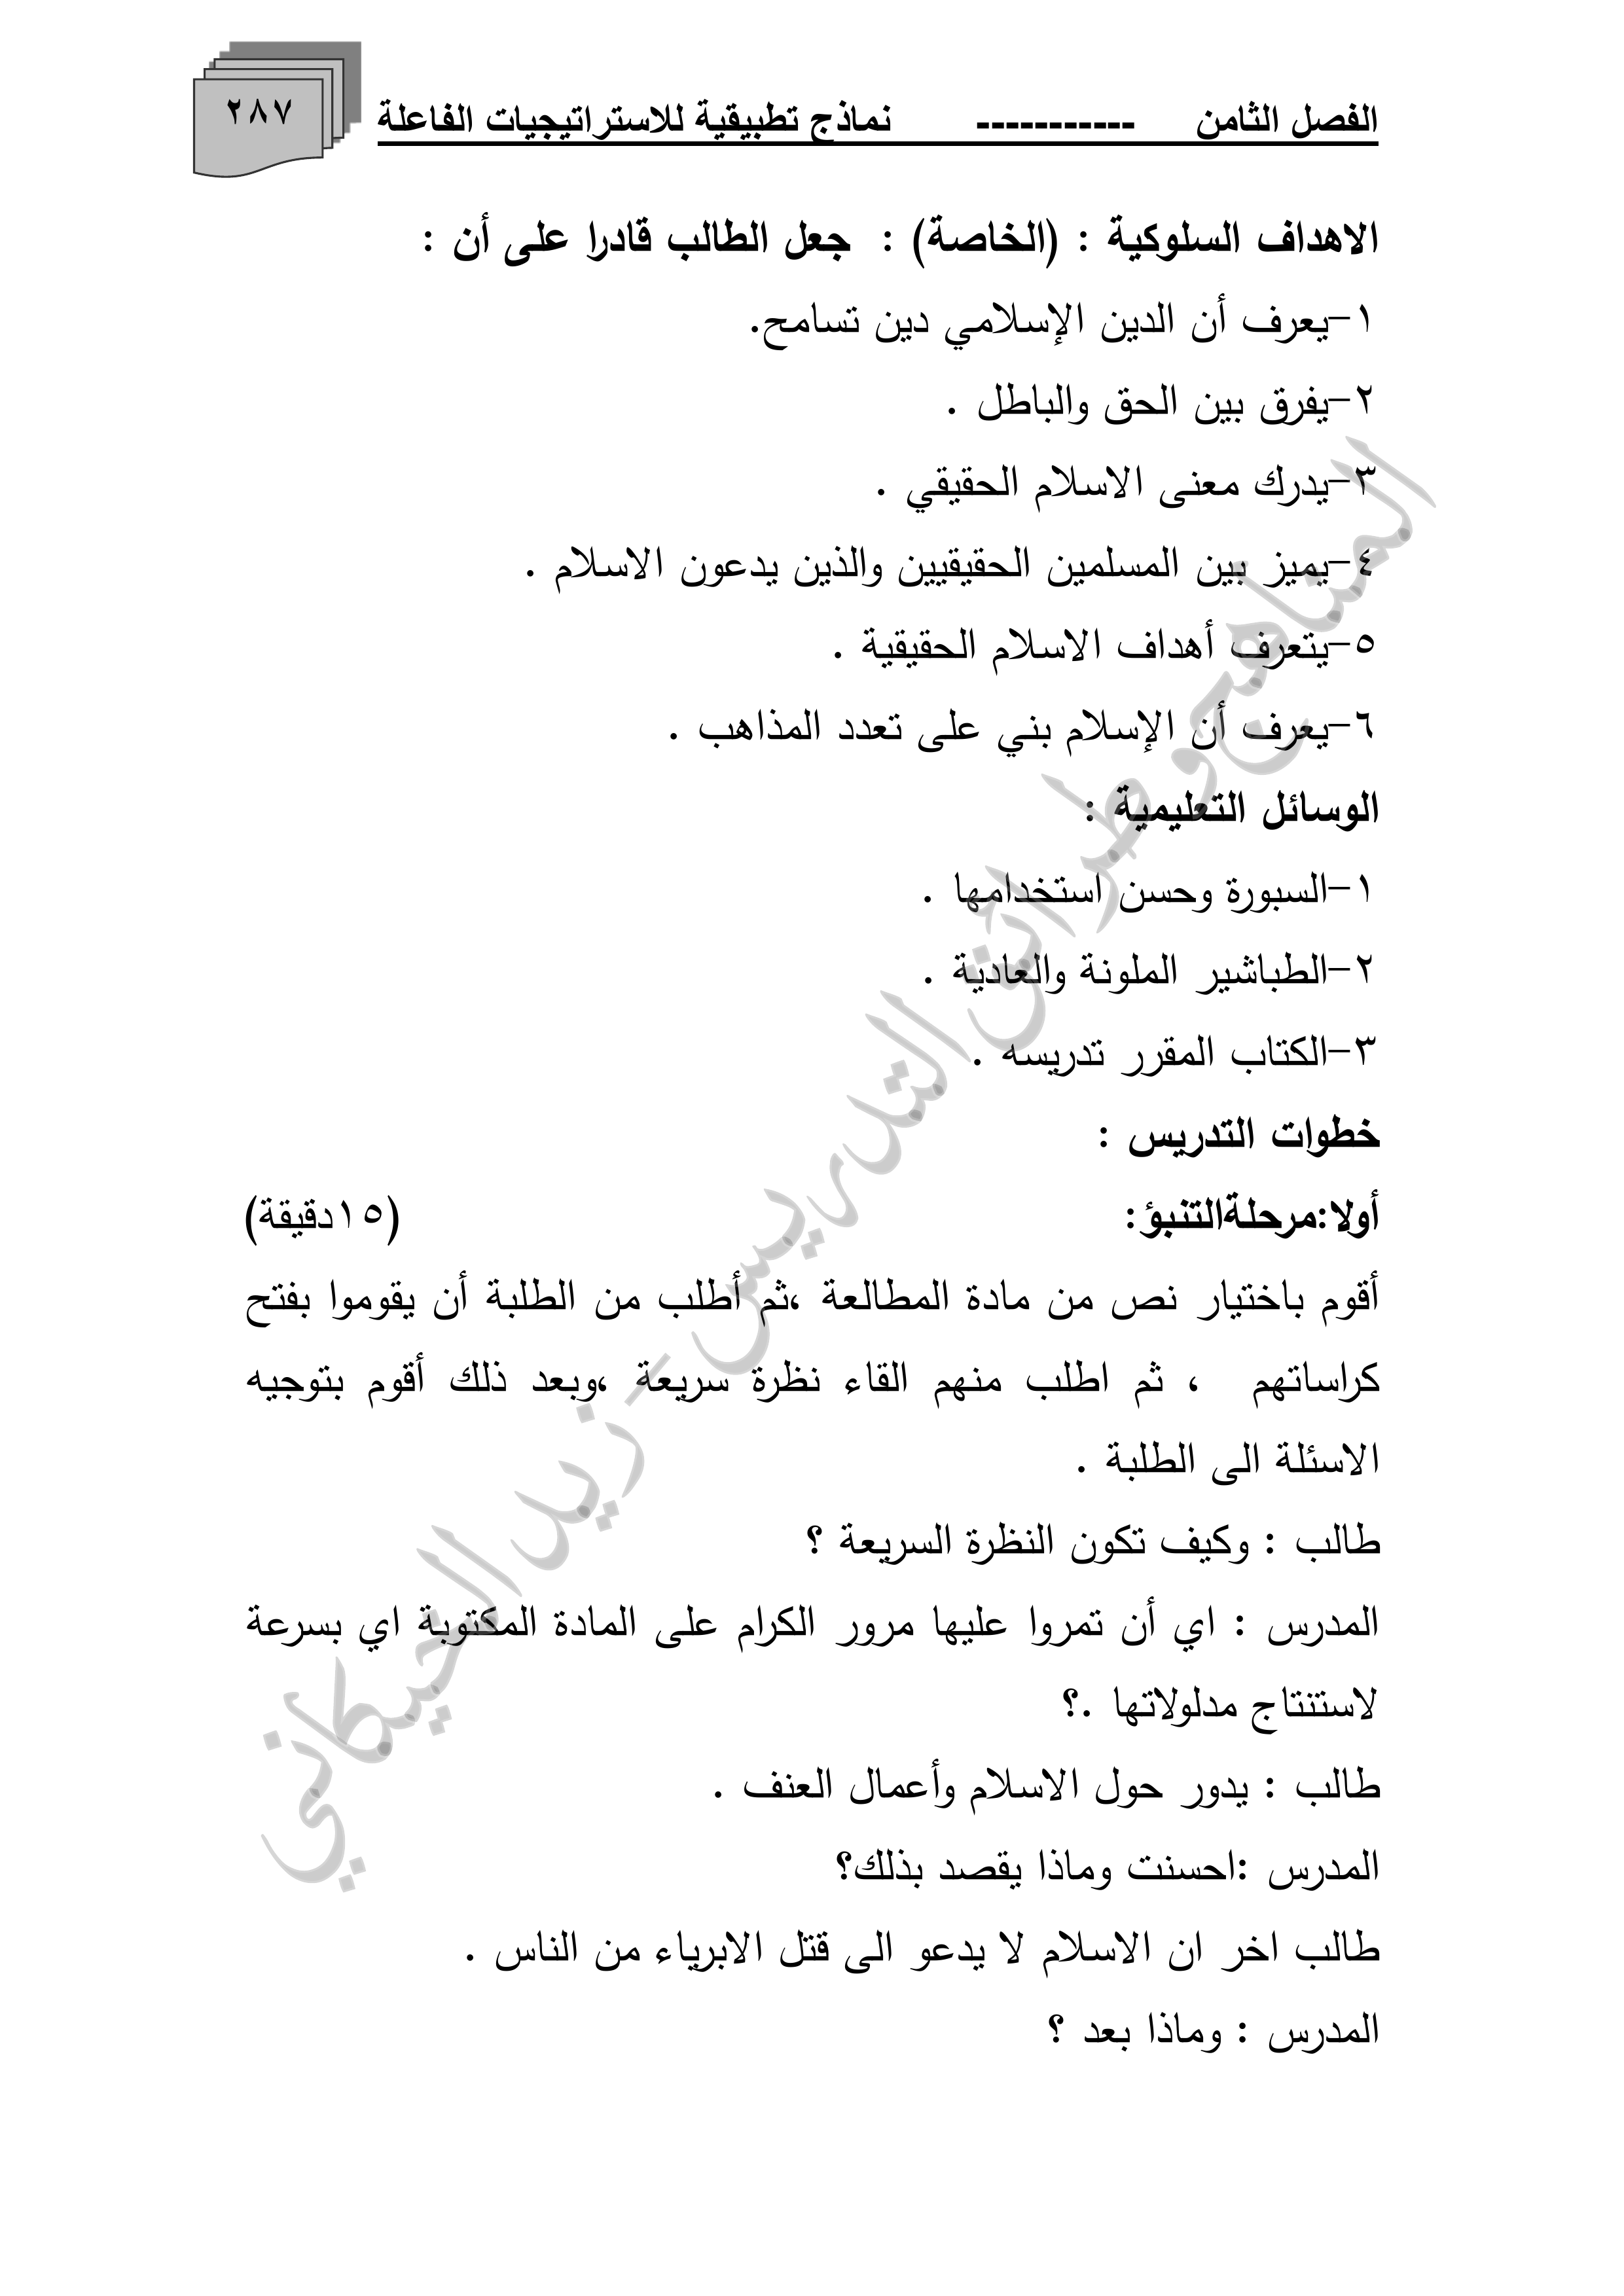 الفصل الثامن ----------- نماذج تطبيقية للاستراتيجيات الفاعلة
٢٨٧
الاهداف السلوكية : (الخاصة) : جعل الطالب قادرا على أن :
١-يعرف أن الدين الإسلامي دين تسامح.
٢-يفرق بين الحق والباطل .
٣-يدرك معنى الاسلام الحقيقي .
٤-يميز بين المسلمين الحقيقيين والذين يدعون الاسلام .
٥-يتعرف أهداف الاسلام الحقيقية .
٦-يعرف أن الإسلام بني على تعدد المذاهب .
الوسائل التعليمية :
١-السبورة وحسن استخدامها .
٢-الطباشير الملونة والعادية .
٣-الكتاب المقرر تدريسه .
خطوات التدريس :
أولا:مرحلةالتنبؤ: (١٥دقيقة)
أقوم باختيار نص من مادة المطالعة ،ثم أطلب من الطلبة أن يقوموا بفتح
كراساتهم ، ثم اطلب منهم القاء نظرة سريعة ،وبعد ذلك أقوم بتوجيه
الاسئلة الى الطلبة .
طالب : وكيف تكون النظرة السريعة ؟
المدرس : اي أن تمروا عليها مرور الكرام على المادة المكتوبة اي بسرعة
لاستنتاج مدلولاتها .؟
طالب : يدور حول الاسلام وأعمال العنف .
المدرس :احسنت وماذا يقصد بذلك؟
طالب اخر ان الاسلام لا يدعو الى قتل الابرياء من الناس .
المدرس : وماذا بعد ؟
المناهج وطرائق التدريس - زيد الخيكاني